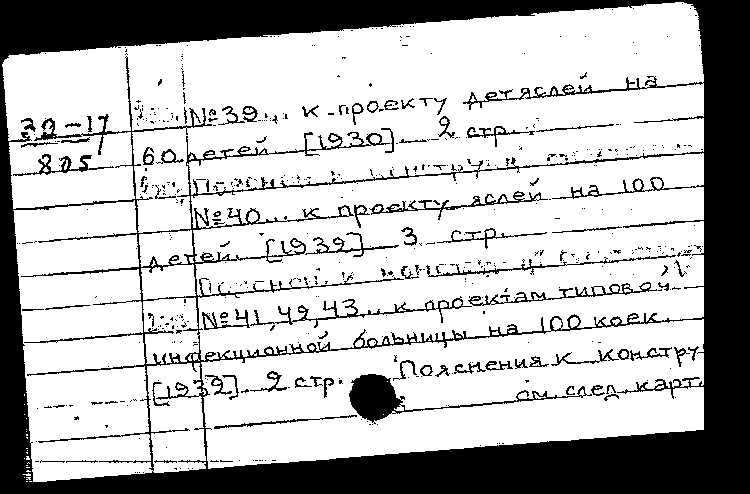 №39... к проекту детяслей на
30-17
805
60 детей [1930]. 2 стр.
Поясн. к констру
№40... к проекту яслей на 100
детей. [1932] 3 стр.
Поясн. к
№41, 42, 43... к проектам типовой
инфекционной больницы на 100 коек.
[1932] 2 стр. Пояснения к констру-
см. след. карт.